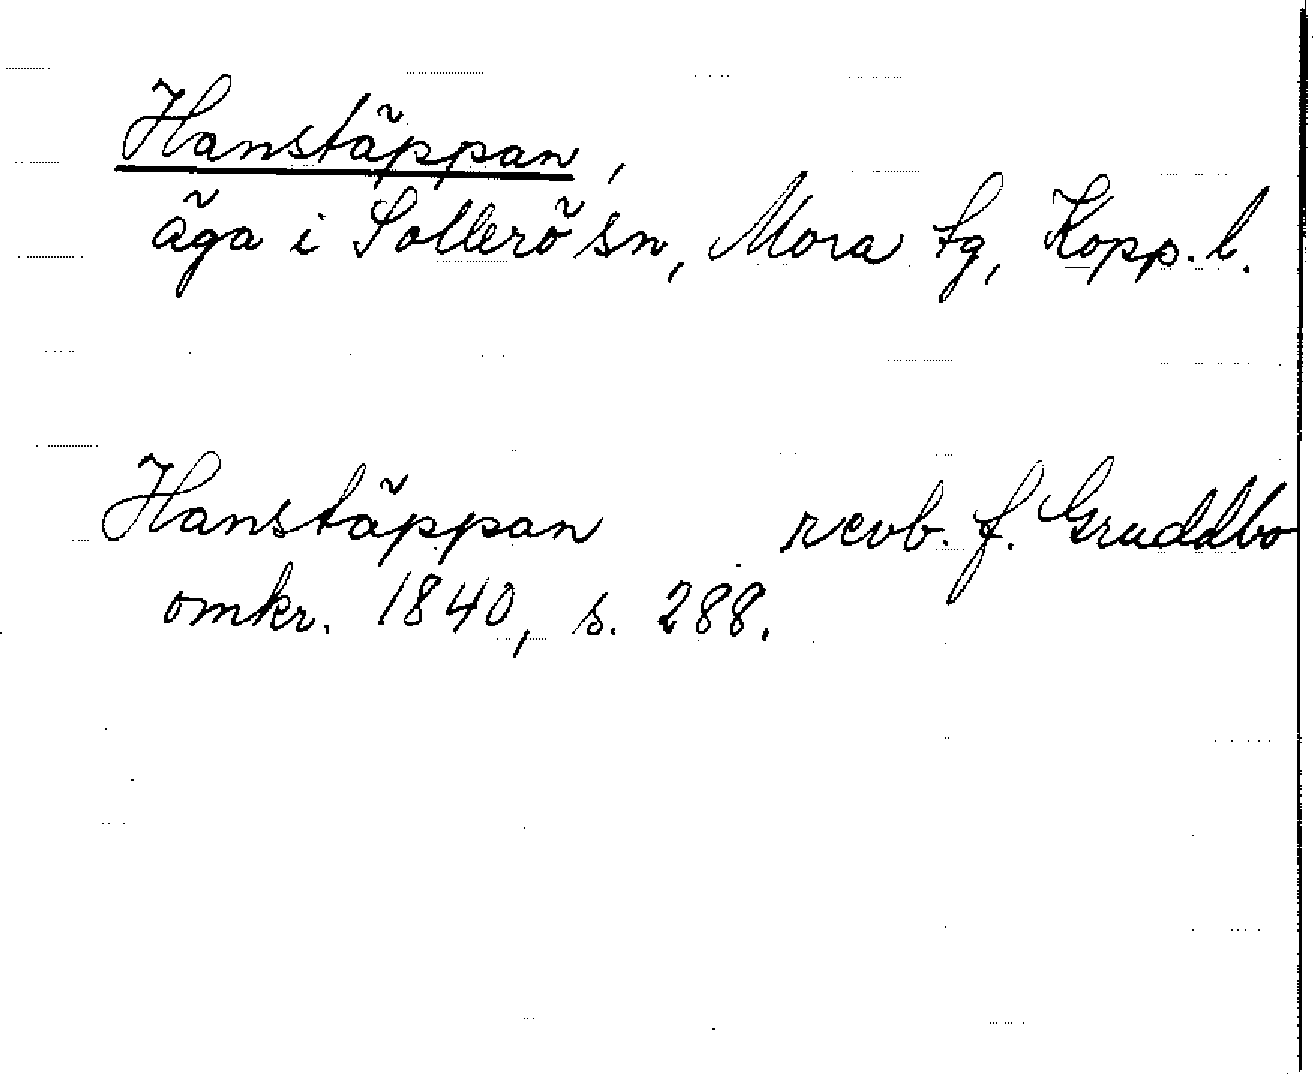 Hanstäppan,
äga i Sollerö sn, Mora tg, Kopp. l.
Hanstäppan revb. f. Gruddbo
omkr. 1840, s. 288.